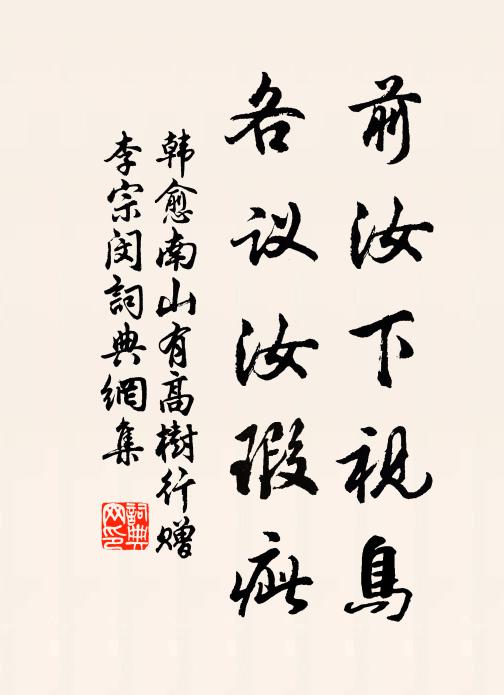 前汝下视鸟
各议汝瑕疵
韩愈南山有高樹行赠
李宗闵詞典網集
詞典
网印